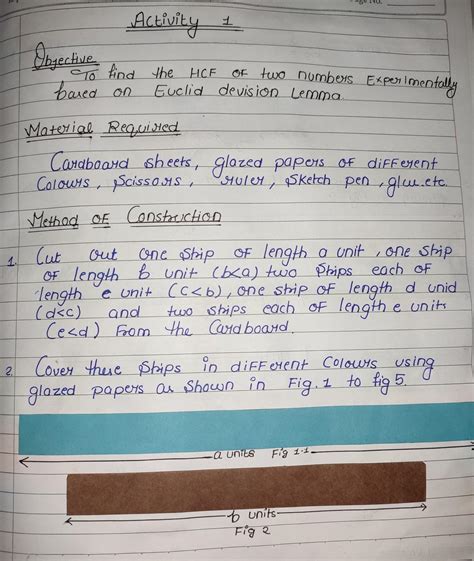 Page No.
Activity 1
Objective
To find the HCF of two numbers Experimentally
based on Euclid devision Lemma.
Material Required
Cardboard sheets, glazed papers of different
Colours, Scissors, ruler, Sketch pen, glue etc.
Method of Construction
1. Cut out one Strip of length a unit, one Strip
of length b unit (b<a) two Strips each of
length e unit (c<b), one strip of length d unid
(d<c) and two strips each of length e units
(e<d) from the Cardboard.
2. Cover these Strips in different Colours using
glazed papers as Shown in Fig. 1 to fig 5.
a units Fig 1.1
b units
Fig 2